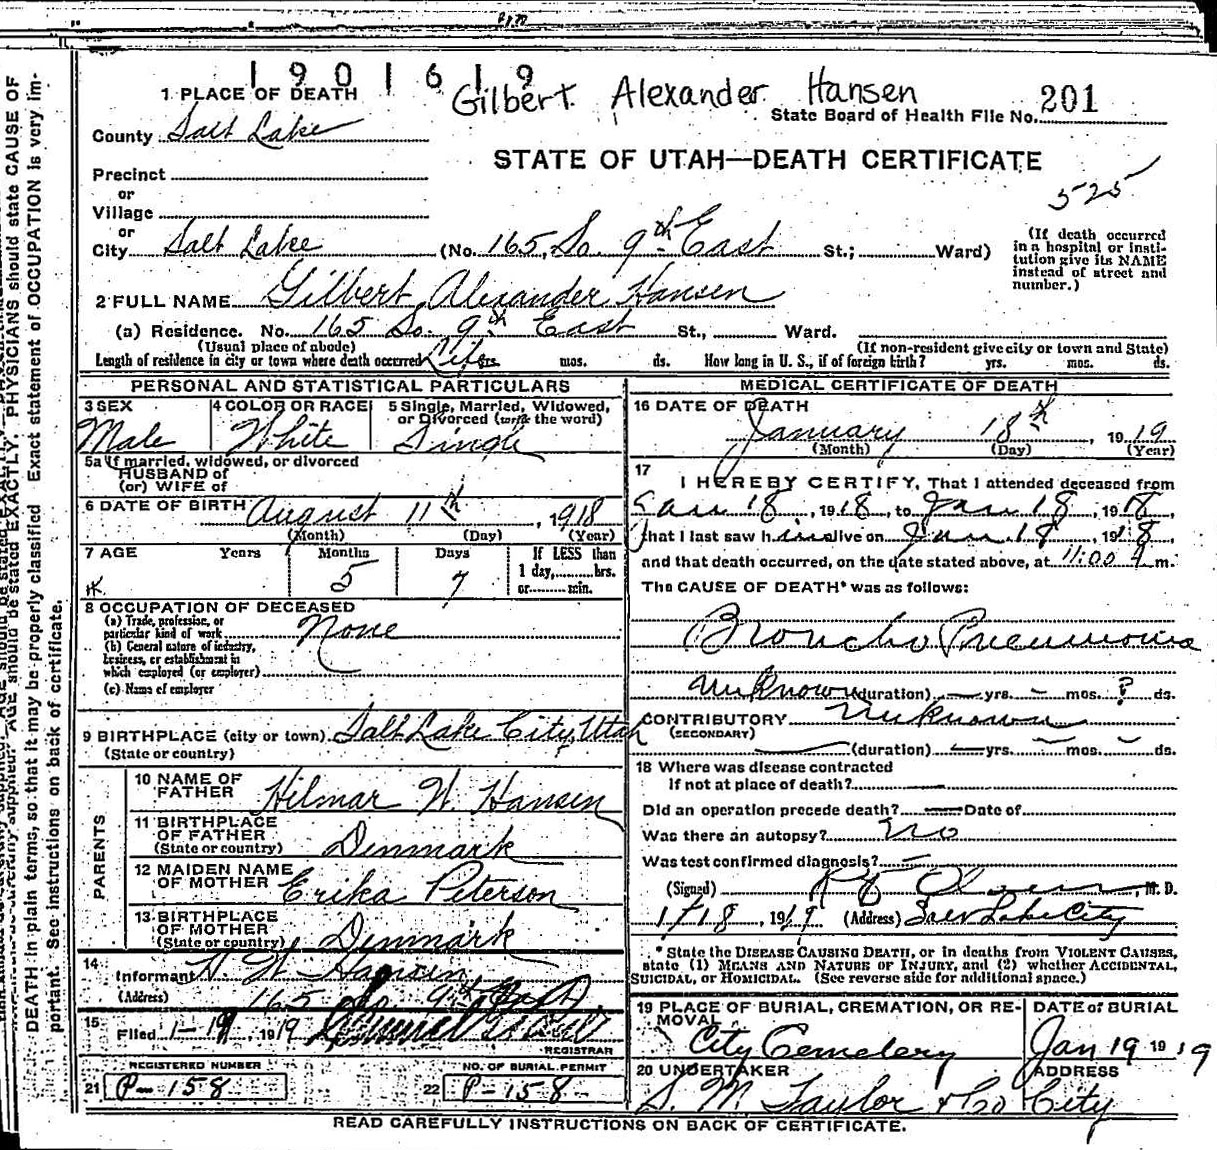 1901619
Gilbert Alexander Hansen
1 PLACE OF DEATH
State Board of Health File No. 201
County Salt Lake
STATE OF UTAH—DEATH CERTIFICATE
Precinct
or
525
Village
or
City Salt Lake (No. 165 So. 9th East St.; Ward)
(If death occurred
in a hospital or insti-
tution give its NAME
instead of street and
number.)
2 FULL NAME Gilbert Alexander Hansen
(a) Residence. No. 165 So. 9th East St., Ward.
(Usual place of abode) (If non-resident give city or town and State)
Length of residence in city or town where death occurred Life yrs. mos. ds. How long in U. S., if of foreign birth? yrs. mos. ds.
PERSONAL AND STATISTICAL PARTICULARS
3 SEX 4 COLOR OR RACE 5 Single, Married, Widowed,
or Divorced (write the word)
Male White Single
5a If married, widowed, or divorced
HUSBAND of
(or) WIFE of
6 DATE OF BIRTH August 11th, 1918
(Month) (Day) (Year)
7 AGE Years Months Days If LESS than
1 day, hrs.
5 7 or min.
8 OCCUPATION OF DECEASED
(a) Trade, profession, or
particular kind of work None
(b) General nature of industry,
business, or establishment in
which employed (or employer)
(c) Name of employer
9 BIRTHPLACE (city or town) Salt Lake City, Utah
(State or country)
PARENTS
10 NAME OF
FATHER Hilmar W Hansen
11 BIRTHPLACE
OF FATHER
(State or country) Denmark
12 MAIDEN NAME
OF MOTHER Erika Peterson
13 BIRTHPLACE
OF MOTHER
(State or country) Denmark
14
Informant H. W. Hansen
(Address) 165 So 9th East
15 Filed 1-19, 1919
REGISTRAR
REGISTERED NUMBER NO. OF BURIAL PERMIT
21 P-158 22 P-158
MEDICAL CERTIFICATE OF DEATH
16 DATE OF DEATH
January 18th, 1919
(Month) (Day) (Year)
17 I HEREBY CERTIFY, That I attended deceased from
Jan 18, 1918, to Jan 18, 1918,
that I last saw him alive on Jan 18, 1918,
and that death occurred, on the date stated above, at 11:00 m.
The CAUSE OF DEATH* was as follows:
Broncho Pneumonia
Unknown (duration) — yrs. - mos. ? ds.
CONTRIBUTORY Unknown
(SECONDARY)
— (duration) — yrs. — mos. — ds.
18 Where was disease contracted
if not at place of death?
Did an operation precede death? — Date of
Was there an autopsy? No
Was test confirmed diagnosis? —
(Signed) Olsen, M. D.
1/18, 1919 (Address) Salt Lake City
* State the DISEASE CAUSING DEATH, or in deaths from VIOLENT CAUSES,
state (1) MEANS AND NATURE OF INJURY, and (2) whether ACCIDENTAL,
SUICIDAL, or HOMICIDAL. (See reverse side for additional space.)
19 PLACE OF BURIAL, CREMATION, OR RE-
MOVAL
City Cemetery
DATE of BURIAL
Jan 19 1919
20 UNDERTAKER ADDRESS
S. M. Taylor & Co City
READ CAREFULLY INSTRUCTIONS ON BACK OF CERTIFICATE.
AGE should be stated EXACTLY. PHYSICIANS should state CAUSE OF
DEATH in plain terms, so that it may be properly classified. Exact statement of OCCUPATION is very im-
portant. See instructions on back of certificate.